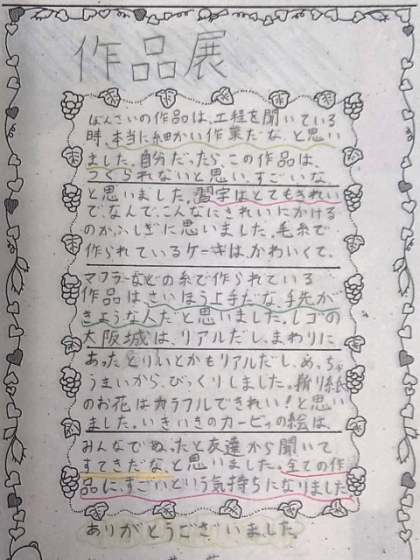 作品展
ぼんさいの作品は、工程を聞いている
時、本当に細かい作業だな、と思い
ました。自分だったら、この作品は、
つくられないと思い、すごいな
と思いました。習字はとてもきれい
で、なんで、こんなにきれいにかける
のかふしぎに思いました。毛糸で
作られているケーキは、かわいくて、
マフラーなどの糸で作られている
作品は、さいほう上手だな、手先が
きような人だと思いました。レゴの
大阪城は、リアルだし、まわりに
あったとりいとかもリアルだし、めっちゃ
うまいから、びっくりしました。折り紙
のお花はカラフルできれい！と思い
ました。いきいきのカービィの絵は、
みんなでぬったと友達から聞いて
すてきだな、と思いました。全ての作
品に、すごいという気持ちになりました。
ありがとうございました。